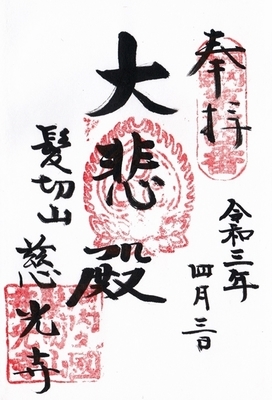 奉拝
令和三年
四月三日
大悲殿
髪切山
慈光寺